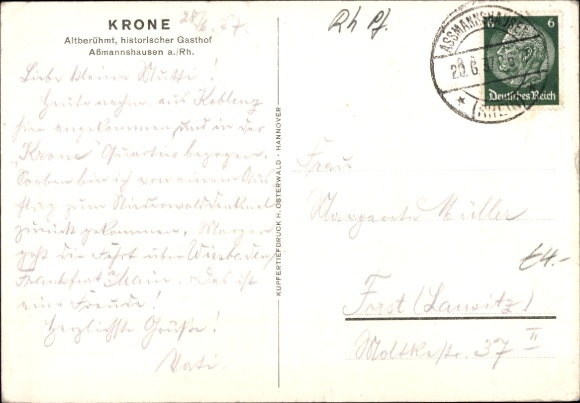 KRONE
Altberühmt, historischer Gasthof
Aßmannshausen a./Rh.
28/6.37.
Rh Pf.
ASSMANNSHAUSEN
20.6.37
(RHEIN)
6
Deutsches Reich
Liebe kleine Mutti!
Heute nachm. aus Koblenz
hier angekommen, und in der
"Krone" Quartier bezogen.
Soeben bin ich von einem Aus-
flug zum Niederwalddenkmal
zurück gekommen. Morgen
geht die Fahrt über Wiesbaden
Frankfurt/Main. Das ist
eine Freude!
Herzlichste Grüße!
Vati.
KUPFERTIEFDRUCK H. OSTERWALD · HANNOVER
Frau
Margarete Müller
Forst (Lausitz)
Moltkestr. 37 II